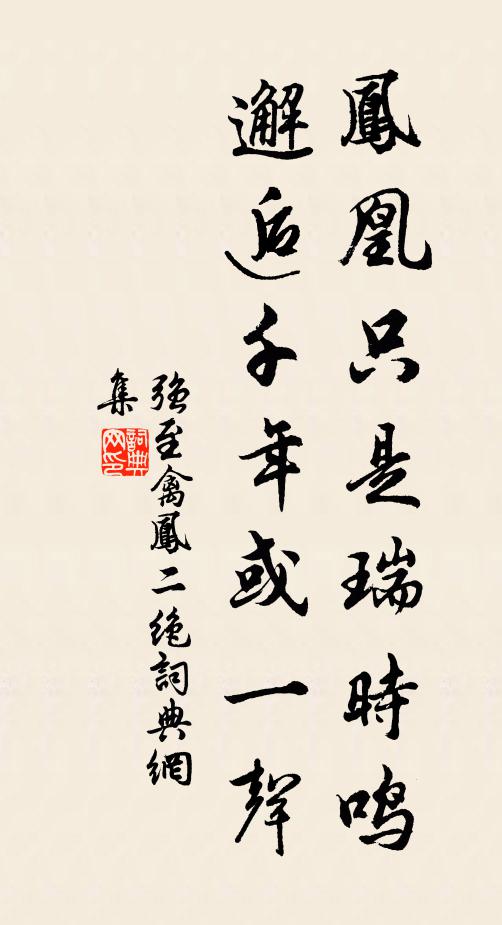 鳳凰只是瑞時鸣
邂逅千年或一聲
強至禽鳳二絶詞典網
集
詞典
网印